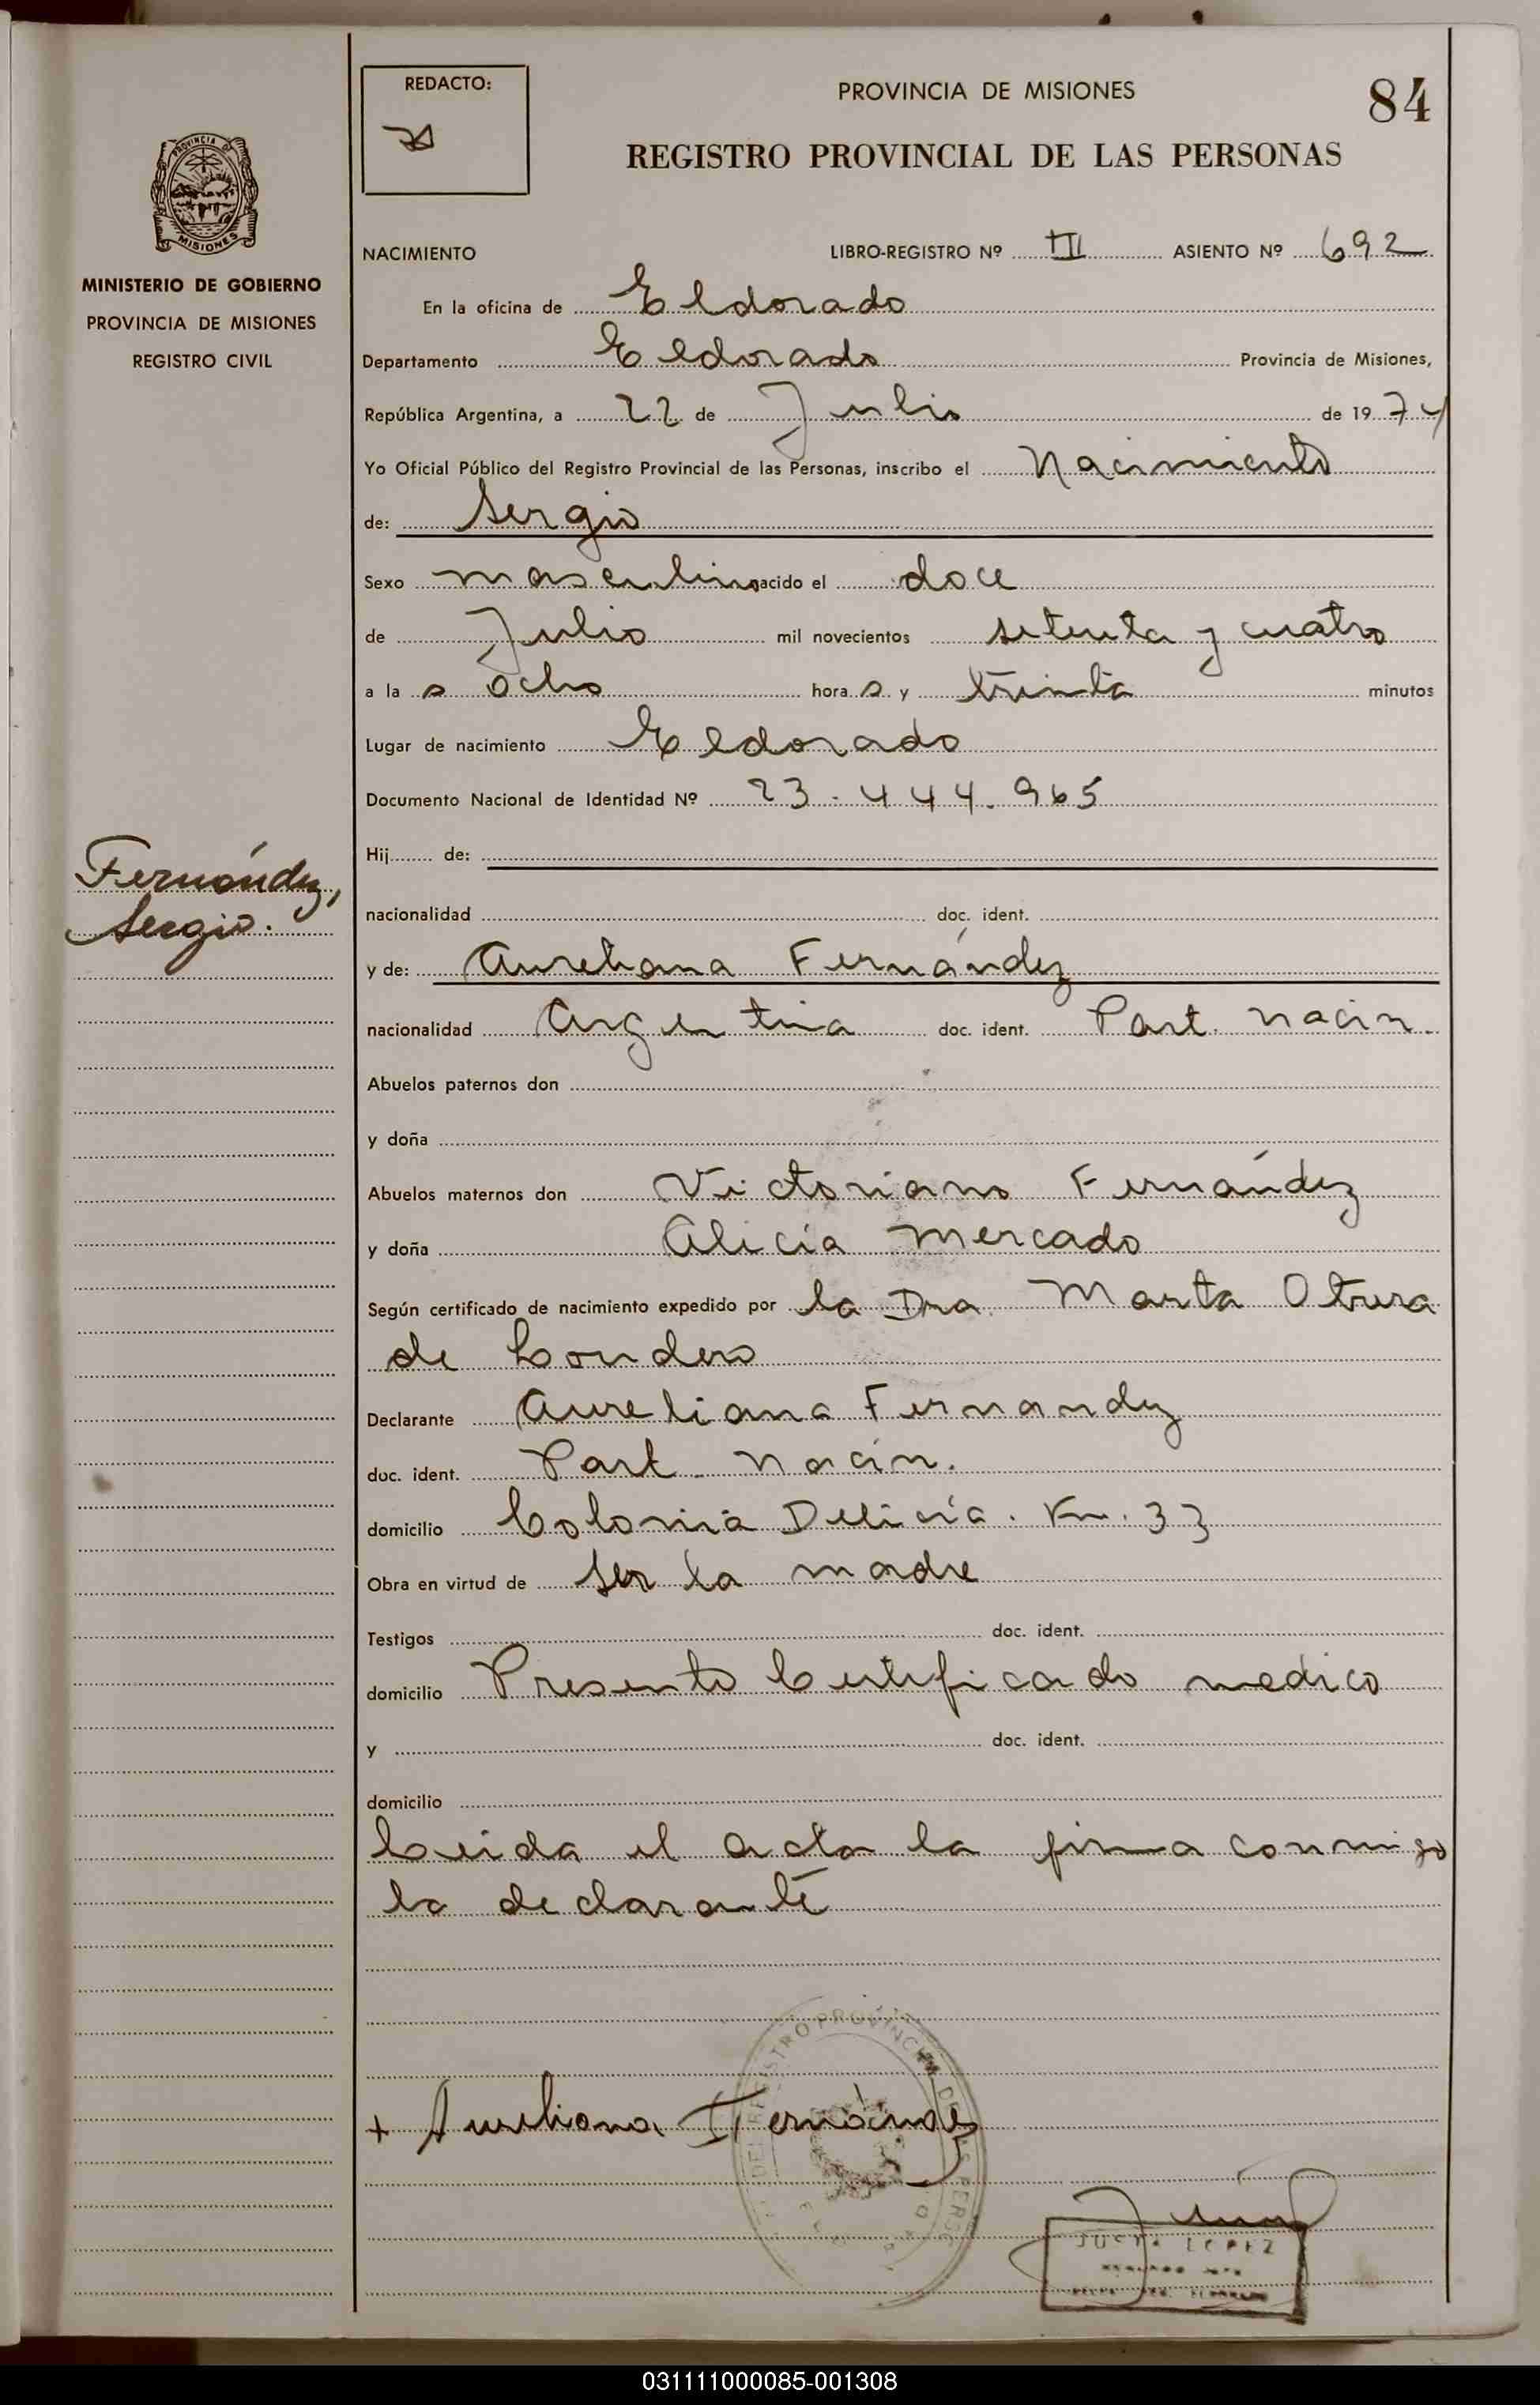 REDACTO:
PROVINCIA DE MISIONES
84
REGISTRO PROVINCIAL DE LAS PERSONAS
PROVINCIA DE
MISIONES
MINISTERIO DE GOBIERNO
PROVINCIA DE MISIONES
REGISTRO CIVIL
NACIMIENTO LIBRO-REGISTRO Nº III ASIENTO Nº 692
En la oficina de Eldorado
Departamento Eldorado Provincia de Misiones,
República Argentina, a 22 de Julio de 1974
Yo Oficial Público del Registro Provincial de las Personas, inscribo el Nacimiento
de: Sergio
Sexo masculino nacido el doce
de Julio mil novecientos setenta y cuatro
a la s ocho hora s y treinta minutos
Lugar de nacimiento Eldorado
Documento Nacional de Identidad Nº 23.444.965
Hij de:
Fernández,
Sergio.
nacionalidad doc. ident.
y de: Aureliana Fernández
nacionalidad Argentina doc. ident. Part. nacim.
Abuelos paternos don
y doña
Abuelos maternos don Victoriano Fernández
y doña Alicia Mercado
Según certificado de nacimiento expedido por la Dra. Marta
de
Declarante Aureliana Fernandez
doc. ident. Part. nacim.
domicilio Colonia Delicia. Km. 33
Obra en virtud de ser la madre
Testigos doc. ident.
domicilio Presento Certificado medico
y doc. ident.
domicilio
Leida el acta la firma conmigo
la declarante
REGISTRO PROVINCIAL DE
+ Aureliana Fernández
JUSTA LOPEZ
031111000085-001308